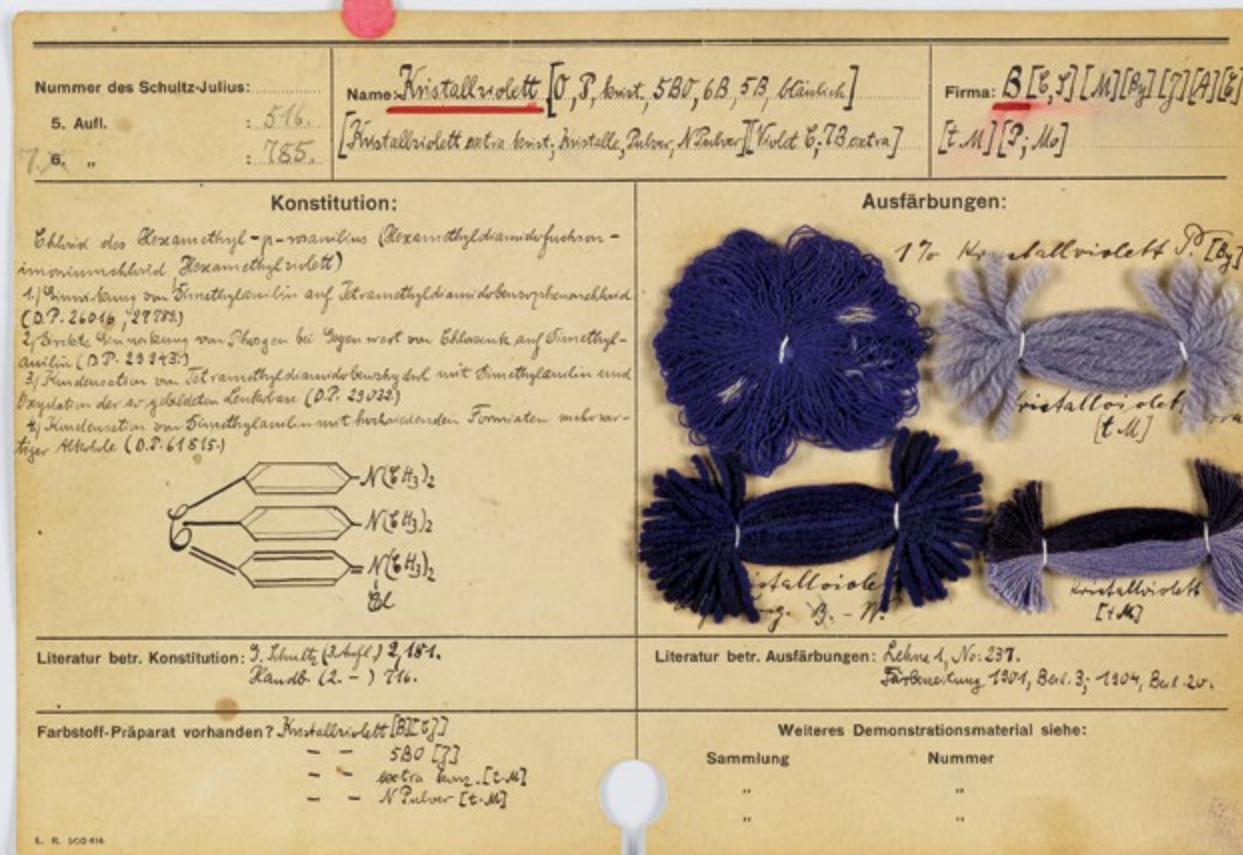 Nummer des Schultz-Julius:
5. Aufl. : 516.
6. „ : 785.
Name: Kristallviolett [O, P, krist, 5BO, 6B, 5B, bläulich]
[Kristallviolett extra krist; Kristalle, Pulver, N Pulver] [Violet C, 7B extra]
Firma: B [C, J] [M] [By] [J] [A] [C]
[t.M] [P; Mo]
Konstitution:
Chlorid des Hexamethyl-p-rosanilins (Hexamethyldiamidofuchson-
imoniumchlorid, Hexamethylviolett)
1.) Einwirkung von Dimethylanilin auf Tetramethyldiamidobenzophenonchlorid
(D.P. 26016, 27789.)
2.) Direkte Einwirkung von Phosgen bei Gegenwart von Chlorzink auf Dimethyl-
anilin (D.P. 29943.)
3.) Kondensation von Tetramethyldiamidobenzhydrol mit Dimethylanilin und
Oxydation der so gebildeten Leukobase (D.P. 29032.)
4.) Kondensation von Dimethylanilin mit hochsiedenden Formiaten mehrwer-
tiger Alkohole (D.P. 61815.)
C
N(CH3)2
N(CH3)2
N(CH3)2
Cl
Ausfärbungen:
1% Kristallviolett P. [By]
ristallviolett
[t.M]
stallviole
g. B.-W.
Kristallviolett
[t.M]
Literatur betr. Konstitution: G. Schultz (3. Aufl.) 2, 181.
Handb. (2. - ) 716.
Literatur betr. Ausfärbungen: Lehne 1, No: 237.
Färbereitung 1901, Beil. 3; 1904, Beil. 20.
Farbstoff-Präparat vorhanden? Kristallviolett [B][C]]
— — 5BO [J]
— — extra konz. [t.M]
— — N Pulver [t.M]
Weiteres Demonstrationsmaterial siehe:
Sammlung Nummer
„ „
„ „